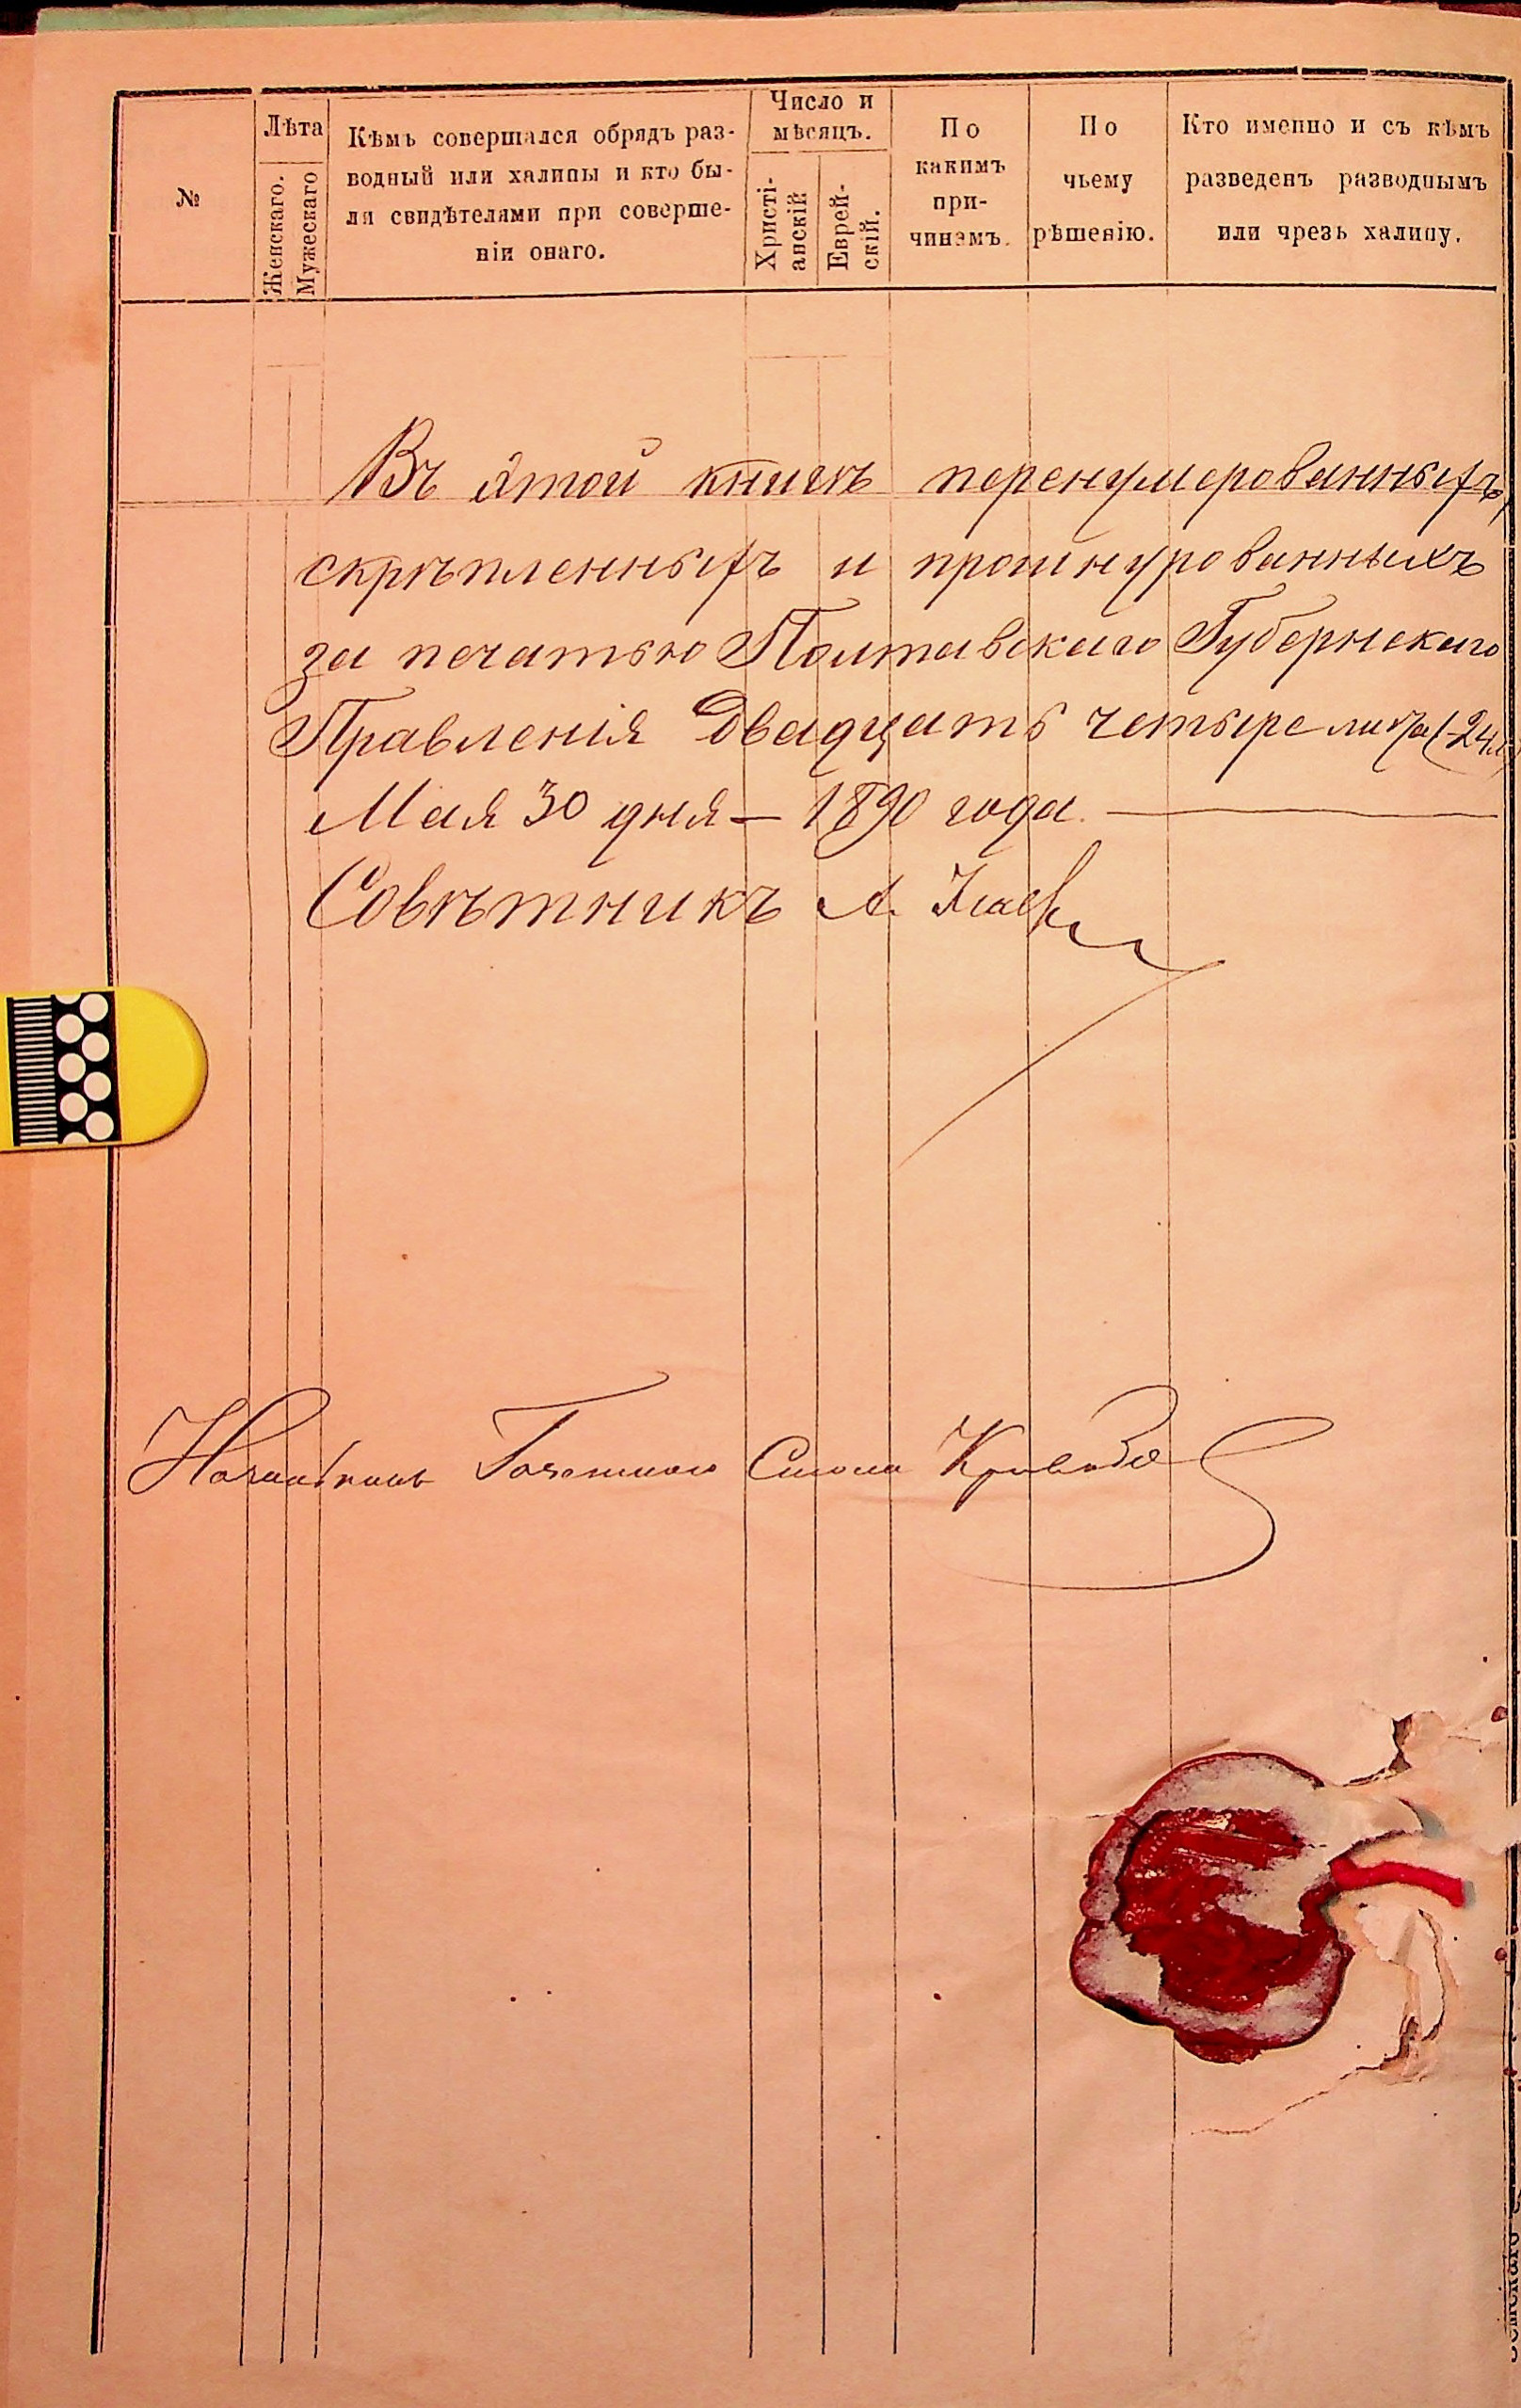 №
Лѣта
Женскаго.
Мужескаго
Кѣмъ совершался обрядъ раз-
водный или халицы и кто бы-
ли свидѣтелями при соверше-
ніи онаго.
Число и
мѣсяцъ.
Христі-
анскій
Еврей-
скій.
По
какимъ
при-
чинамъ.
По
чьему
рѣшенію.
Кто именно и съ кѣмъ
разведенъ разводнымъ
или чрезъ халицу.
Въ этой книгѣ перенумерованныхъ,
скрѣпленныхъ и прошнурованныхъ
за печатью Полтавскаго Губернскаго
Правленія двадцать четыре листа (24л)
Мая 30 дня — 1890 года.
Совѣтникъ А.
Стола